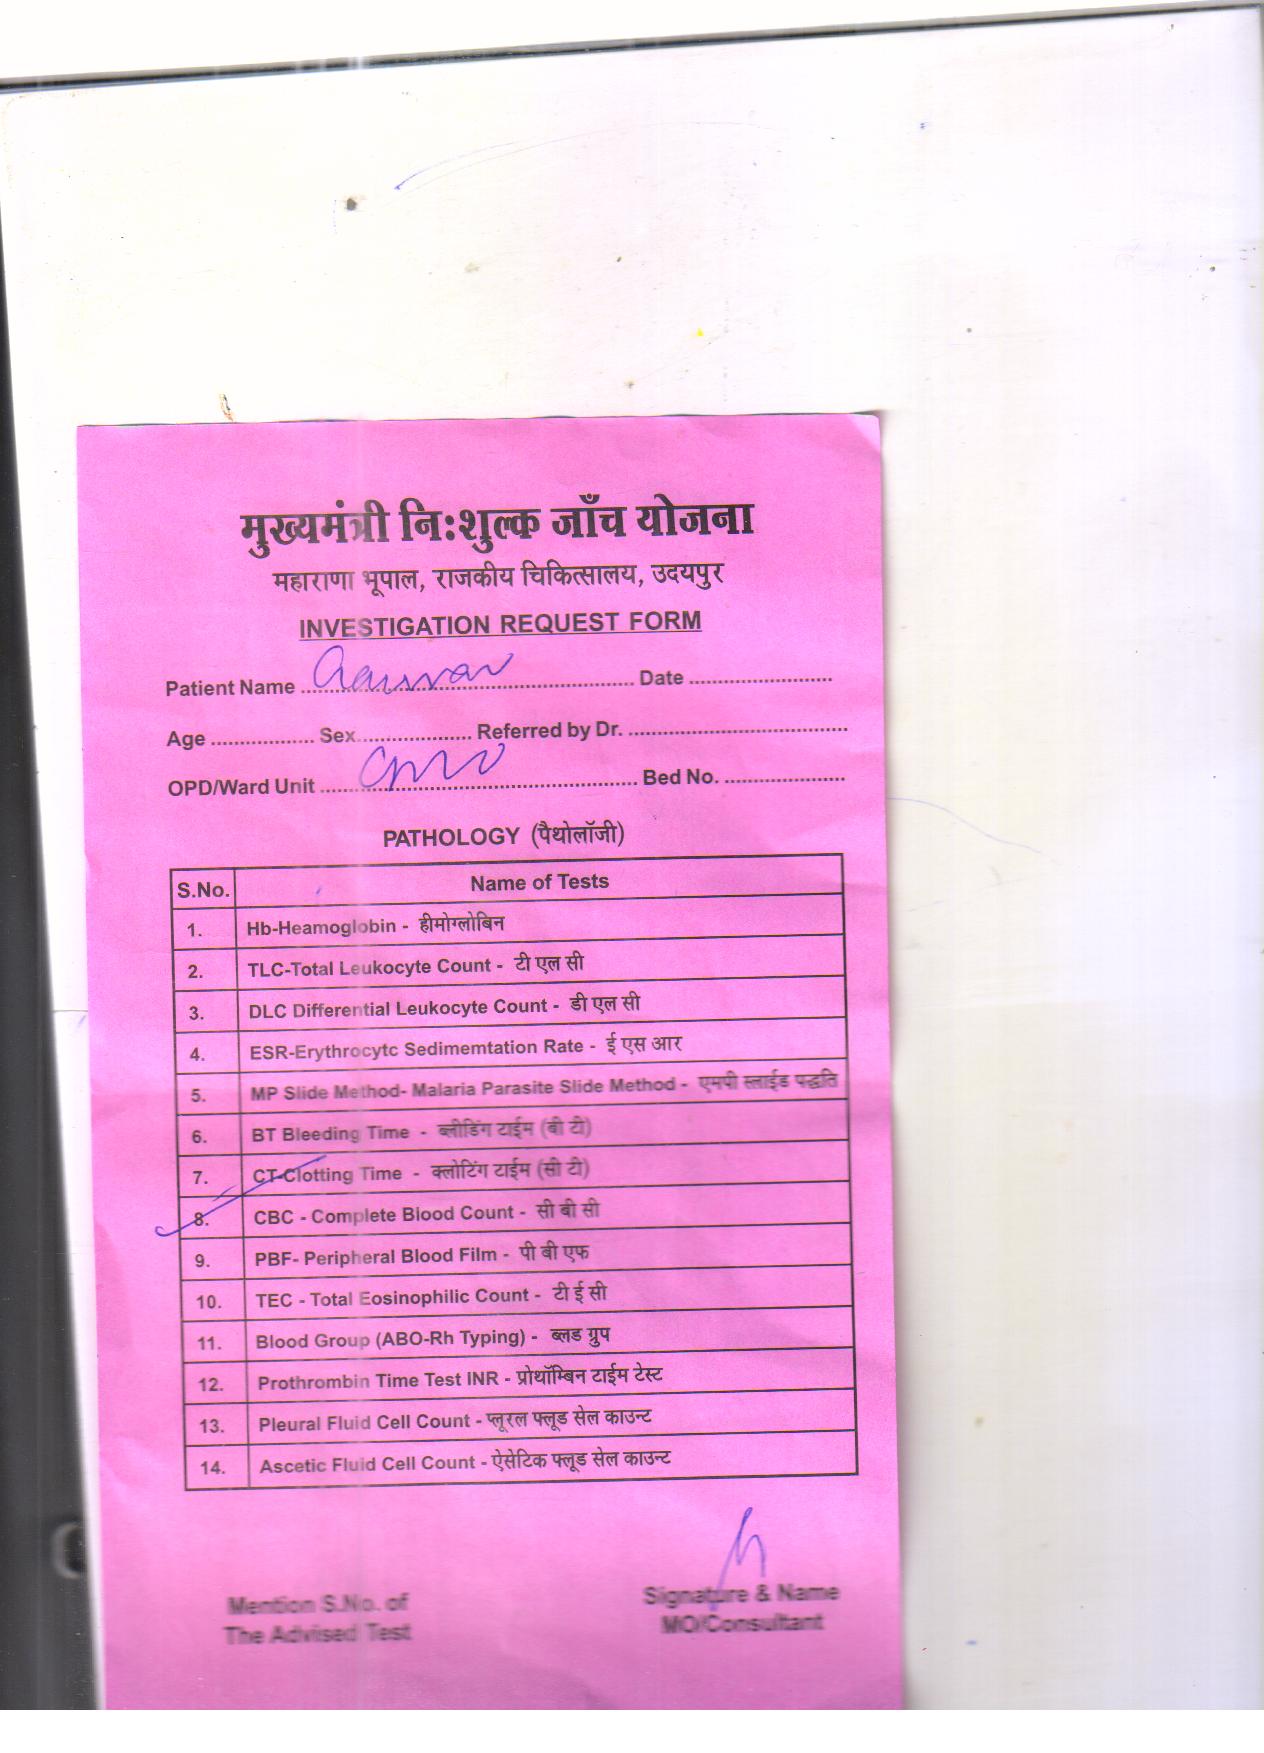 मुख्यमंत्री निःशुल्क जाँच योजना
महाराणा भूपाल, राजकीय चिकित्सालय, उदयपुर
INVESTIGATION REQUEST FORM
Patient Name .......... Date ..........
Age .......... Sex .......... Referred by Dr. ..........
OPD/Ward Unit .......... Bed No. ..........
PATHOLOGY (पैथोलॉजी)
S.No. Name of Tests
1. Hb-Heamoglobin - हीमोग्लोबिन
2. TLC-Total Leukocyte Count - टी एल सी
3. DLC Differential Leukocyte Count - डी एल सी
4. ESR-Erythrocytc Sedimemtation Rate - ई एस आर
5. MP Slide Method- Malaria Parasite Slide Method - एमपी स्लाईड पद्धति
6. BT Bleeding Time - ब्लीडिंग टाईम (बी टी)
7. CT-Clotting Time - क्लोटिंग टाईम (सी टी)
8. CBC - Complete Blood Count - सी बी सी
9. PBF- Peripheral Blood Film - पी बी एफ
10. TEC - Total Eosinophilic Count - टी ई सी
11. Blood Group (ABO-Rh Typing) - ब्लड ग्रुप
12. Prothrombin Time Test INR - प्रोथॉम्बिन टाईम टेस्ट
13. Pleural Fluid Cell Count - प्लूरल फ्लूड सेल काउन्ट
14. Ascetic Fluid Cell Count - ऐसेटिक फ्लूड सेल काउन्ट
Mention S.No. of Signature & Name
The Advised Test MO/Consultant